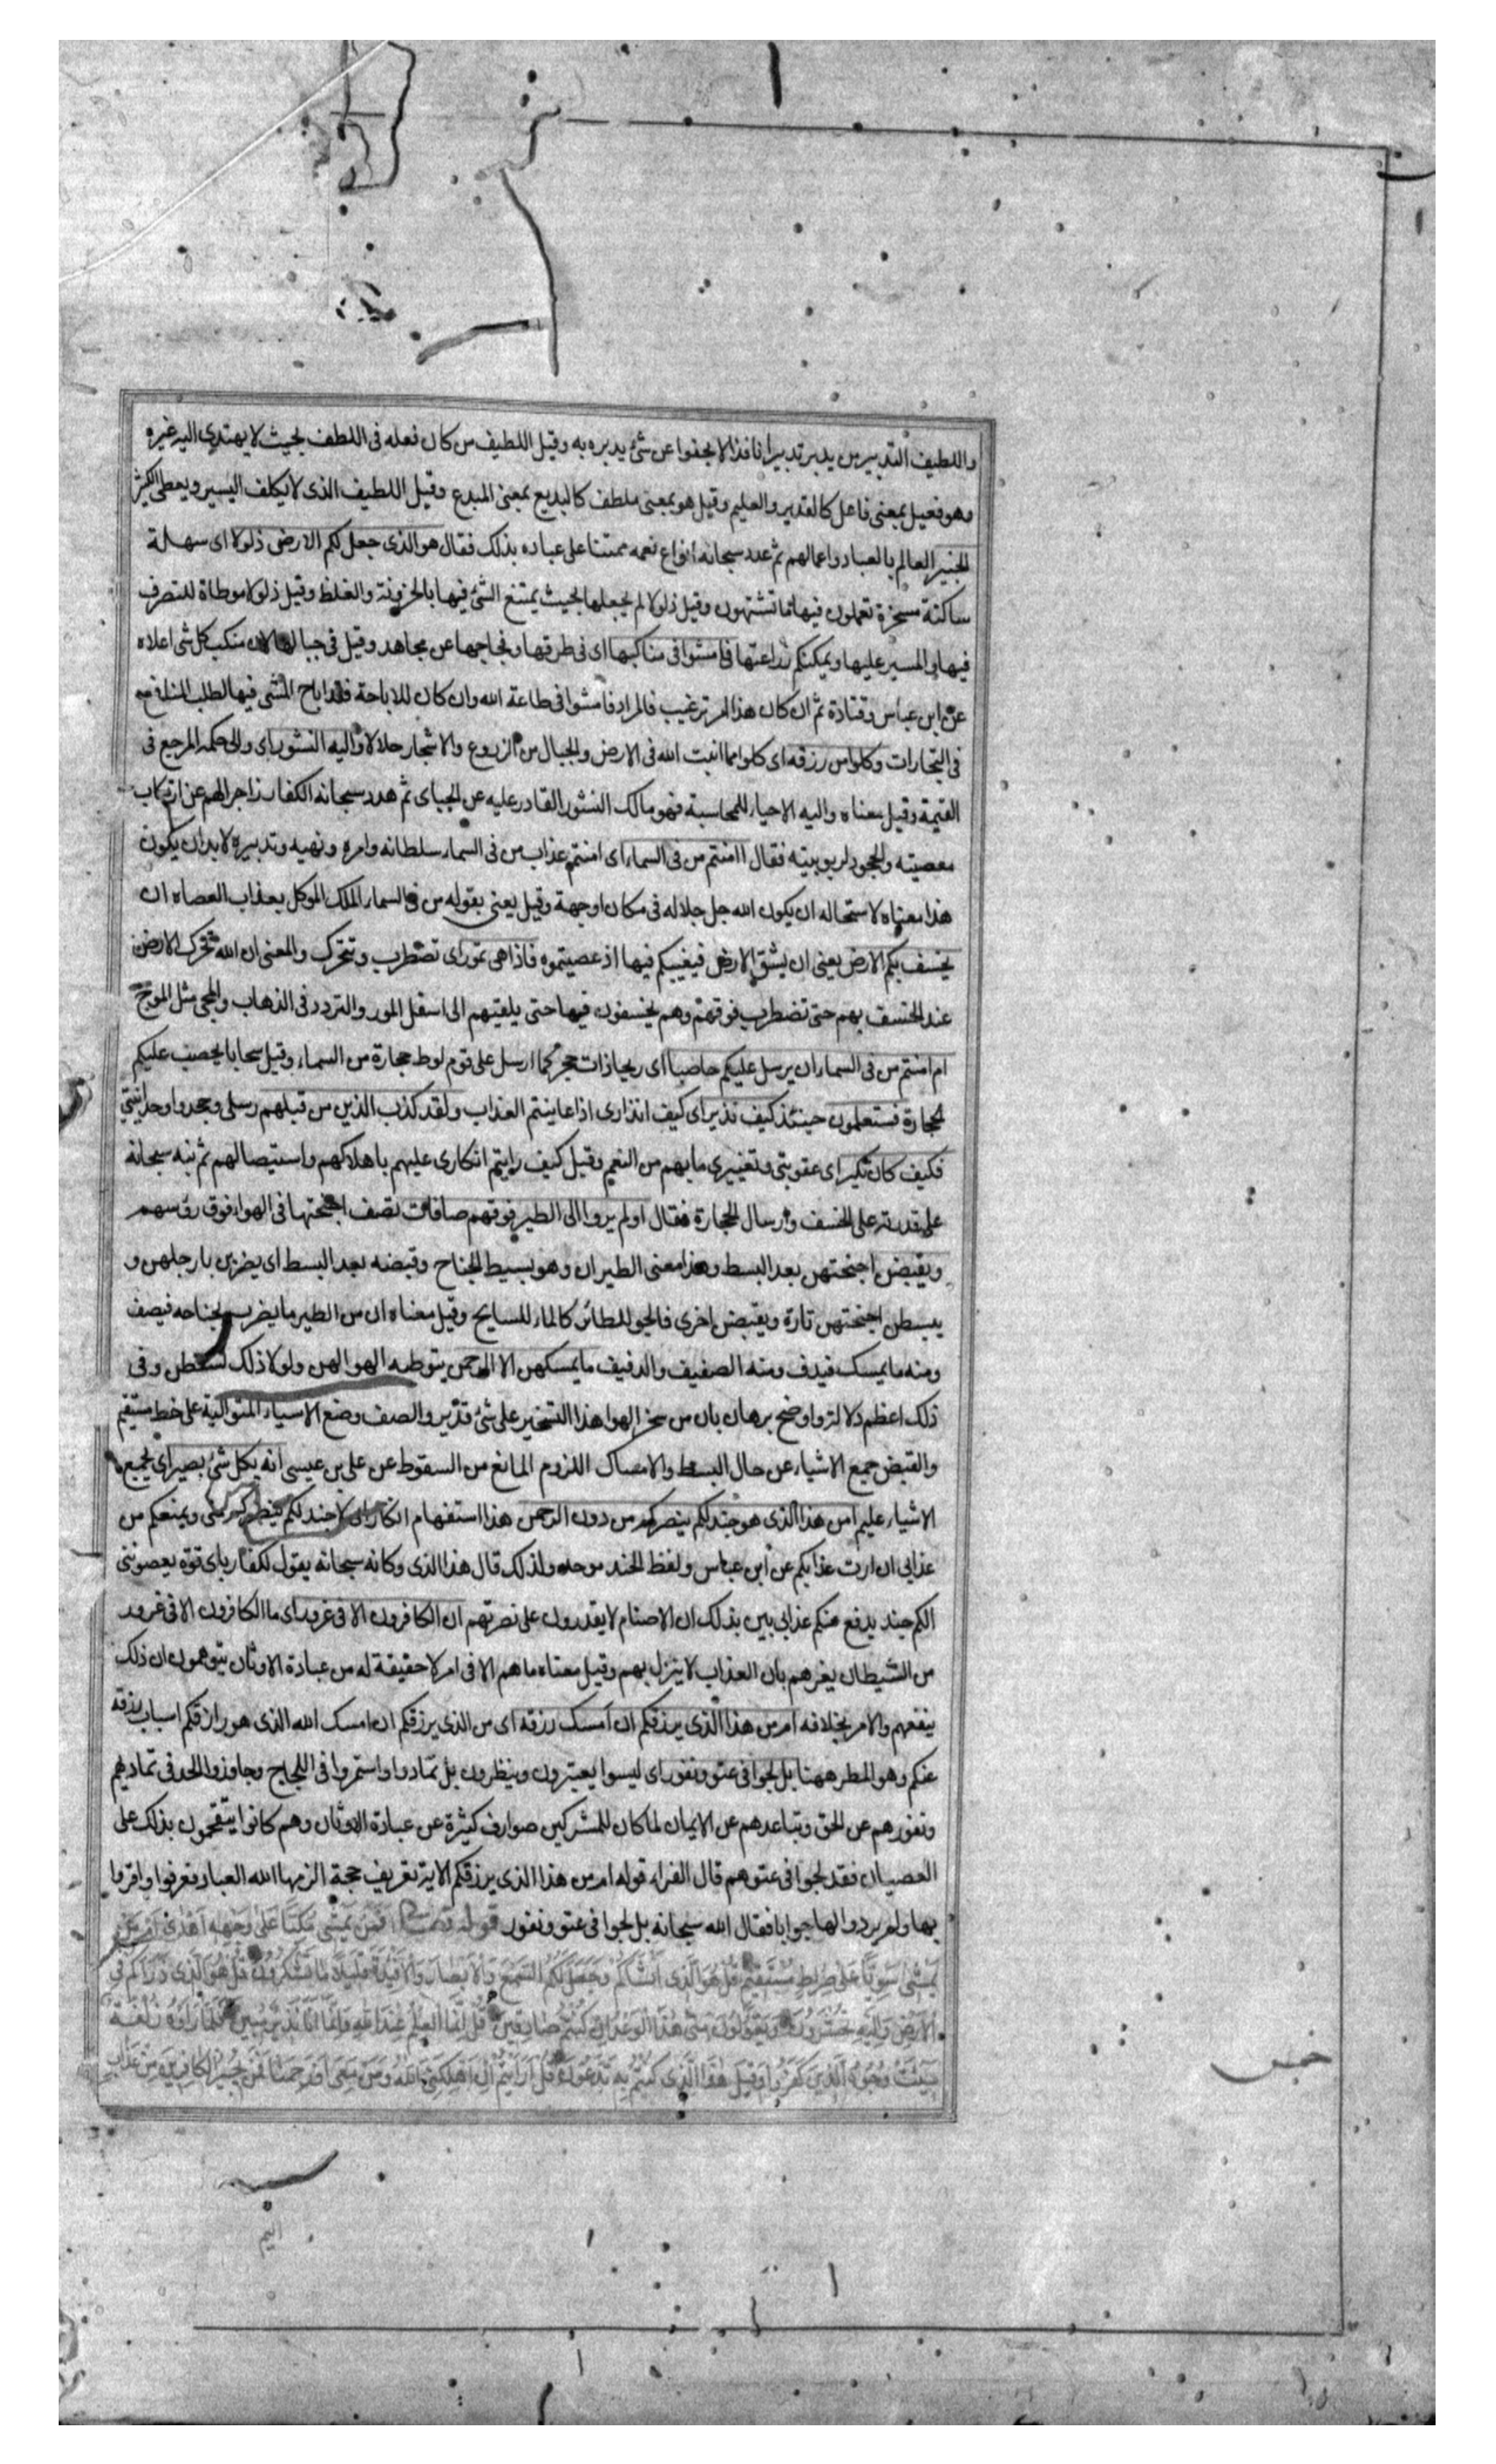 واللطيف التدبير من يدبر تدبيرا نافذا لا يجفوا عن شئ يدبره به وقيل اللطيف من كان فعله فى اللطف بحيث لا يهتدى اليه غيره
وهو فعيل بمعنى فاعل كالقدير والعليم وقيل هو بمعنى ملطف كالبديع بمعنى المبدع وقيل اللطيف الذى لا يكلف اليسير ويعطى الكثير
الخبير العالم بالعباد واعمالهم ثم عدد سبحانه انواع نعمه ممتنا على عباده بذلك فقال هو الذى جعل لكم الارض ذلولا اى سهلة
ساكنة مسخرة تعملون فيها ما تشتهون وقيل ذلولا لم يجعلها بحيث يمتنع الشئ فيها بالحزونة والغلظ وقيل ذلولا موطاة للتصرف
فيها والمسير عليها ويمكنكم زراعتها فامشوا فى مناكبها اى فى طرقها وفجاجها عن مجاهد وقيل فى جبالها لان منكب كل شى اعلاه
عن ابن عباس وقتادة ثم ان كان هذا امر ترغيب فالمراد فامشوا فى طاعة الله وان كان للاباحة فقد اباح المشى فيها لطلب المنافع
فى التجارات وكلوا من رزقه اى كلوا مما انبت الله فى الارض والجبال من الزروع والاشجار حلالا واليه النشور اى والى حكمه المرجع فى
القيمة وقيل معناه واليه الاحياء للمحاسبة فهو مالك النشور القادر عليه عن الجباى ثم هدد سبحانه الكفار زاجرا لهم عن ارتكاب
معصيته والجحود لربوبيته فقال اامنتم من فى السماء اى امنتم عذاب من فى السماء سلطانه وامره ونهيه وتدبيره لابد ان يكون
هذا معناه لاستحاله ان يكون الله جل جلاله فى مكان اوجهة وقيل يعنى بقوله من فى السماء الملك الموكل بعذاب العصاه ان
يخسف بكم الارض يعنى ان يشق الارض فيغيبكم فيها اذ عصيتموه فاذا هى تمور اى تضطرب وتتحرك والمعنى ان الله يحرك الارض
عند الخسف بهم حتى تضطرب فوقهم وهم يخسفون فيها حتى يلقيهم الى اسفل المور والتردد فى الذهاب والمجى مثل الموج
ام امنتم من فى السماء ان يرسل عليكم حاصبا اى ريحا ذات حجر كما ارسل على قوم لوط حجارة من السماء وقيل سحابا يحصب عليكم
الحجارة فستعلمون حينئذ كيف نذير اى كيف انذارى اذا عاينتم العذاب ولقد كذب الذين من قبلهم رسلى وجحدوا وحدانيتى
فكيف كان نكير اى عقوبتى وتغييرى ما بهم من النعم وقيل كيف رايتم انكارى عليهم باهلاكهم واستيصالهم ثم نبه سبحانه
على قدرته على الخسف وارسال الحجارة فقال اولم يروا الى الطير فوقهم صافات تصف اجنحتها فى الهواء فوق رؤسهم
ويقبض اجنحتهن بعد البسط وهذا معنى الطيران وهو بسيط الجناح وقبضه بعد البسط اى يضربن بارجلهن و
يبسطن اجنحتهن تارة ويقبضن اخرى فالجو للطائر كالماء للسابح وقيل معناه ان من الطير ما يضرب بجناحه فيصف
ومنه ما يمسك فيدف ومنه الصفيف والدفيف ما يمسكهن الا الرحمن بتوطيه الهوا لهن ولولا ذلك لسقطن وفى
ذلك اعظم دلالة واوضح برهان بان من سخر الهوا هذا التسخير على شئ قدير والصف وضع الاشياء المتوالية على خط مستقيم
والقبض جميع الاشياء عن حال البسط والامساك اللزوم المانع من السقوط عن على بن عيسى انه بكل شئ بصير اى بجميع
الاشياء عليم امن هذا الذى هو جند لكم ينصركم من دون الرحمن هذا استفهام انكار اى لا جند لكم ينصركم منى ويمنعكم من
عذابى ان اردت عذابكم عن ابن عباس ولفظ الجند موحد ولذلك قال هذا الذى وكانه سبحانه يقول للكفار باى قوة يعصوننى
الكم جند يدفع عنكم عذابى بين بذلك ان الاصنام لا يقدرون على نصرتهم ان الكافرون الا فى غرور اى ما الكافرون الا فى غرور
من الشيطان يغرهم بان العذاب لا ينزل بهم وقيل معناه ما هم الا فى امر لا حقيقة له من عبادة الاوثان يتوهمون ان ذلك
ينفعهم والامر بخلافه امن هذا الذى يرزقكم ان امسك رزقه اى من الذى يرزقكم ان امسك الله الذى هو رازقكم اسباب رزقه
عنكم وهو المطر ههنا بل لجوا فى عتو ونفور اى ليسوا يعتبرون وينظرون بل تمادوا واستمروا فى اللجاج وجاوزوا الحد فى تماديهم
ونفورهم عن الحق وتباعدهم عن الايمان لما كان للمشركين صوارف كثيرة عن عبادة الاوثان وهم كانوا يتقحمون بذلك على
العصيان فقد لجوا فى عتوهم قال الفراء قوله امن هذا الذى يرزقكم الاية تعريف حجة الزمها الله العباد فعرفوا واقروا
بها ولم يردوا لها جوابا فقال الله سبحانه بل لجوا فى عتو ونفور قوله افمن يمشى مكبا على وجهه اهدى امن
يمشى سويا على صراط مستقيم قل هو الذى انشاكم وجعل لكم السمع والابصار والافئدة قليلا ما تشكرون قل هو الذى ذراكم فى
الارض واليه تحشرون ويقولون متى هذا الوعد ان كنتم صادقين قل انما العلم عند الله وانما انا نذير مبين فلما راوه زلفة
سيئت وجوه الذين كفروا وقيل هذا الذى كنتم به تدعون قل ارايتم ان اهلكنى الله ومن معى او رحمنا فمن يجير الكافرين من عذاب
اليم